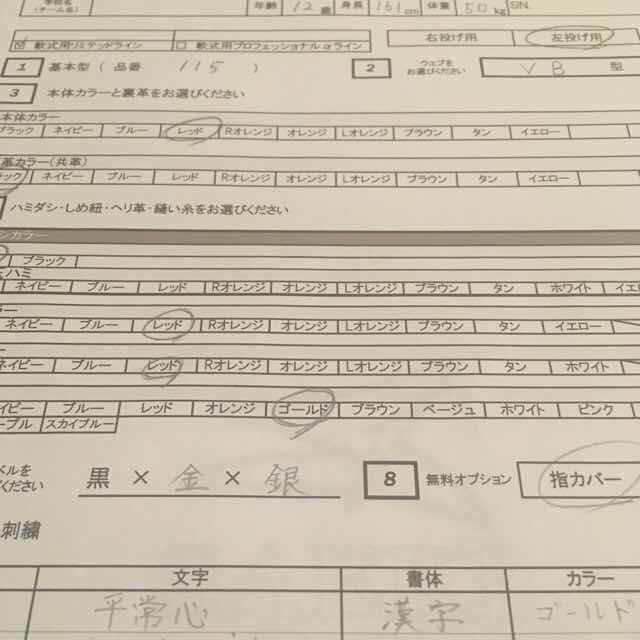 (チーム名) 年齢 12歳 身長 161cm 体重 50kg SN.
軟式用リミテッドライン □ 軟式用プロフェッショナルαライン 右投げ用 左投げ用
1 基本型(品番 115 ) 2 ウェブをお選びください VB 型
3 本体カラーと裏革をお選びください
本体カラー
ブラック ネイビー ブルー レッド Rオレンジ オレンジ Lオレンジ ブラウン タン イエロー
革カラー(共革)
ラック ネイビー ブルー レッド Rオレンジ オレンジ Lオレンジ ブラウン タン イエロー
ハミダシ・しめ紐・ヘリ革・縫い糸をお選びください
ンカラー
ブラック
ハミ
ネイビー ブルー レッド Rオレンジ オレンジ Lオレンジ ブラウン タン ホワイト イエロ
ラー
ネイビー ブルー レッド Rオレンジ オレンジ Lオレンジ ブラウン タン イエロー
ー
ネイビー ブルー レッド Rオレンジ オレンジ Lオレンジ ブラウン タン ホワイト
イビー ブルー レッド オレンジ ゴールド ブラウン ベージュ ホワイト ピンク
ープル スカイブルー
ベルを
ください 黒 × 金 × 銀 8 無料オプション 指カバー
刺繍
文字 書体 カラー
平常心 漢字 ゴールド